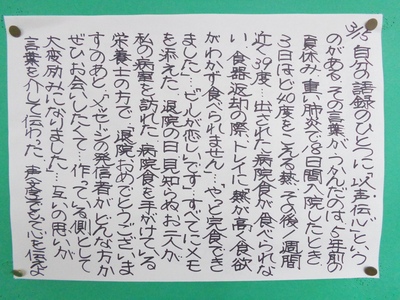 3/5 自分の語録のひとつに「以声伝心」という
のがある。その言葉が、つかんだのは5年前の
夏休み、重い肺炎で18日間入院したとき
3日ほど40度をこえる熱、その後一週間
近く39度…出された病院食が食べられな
い、食器返却の際、トレイに「熱が高く食欲
がわかず食べられません」「やっと完食でき
ました」「ビールが恋しいです」すべてにメモ
を添えた。退院の日、見知らぬお二人が
私の病室を訪れた。病院食を手がけている
栄養士の方で、「退院おめでとうございま
すのあと、メッセージの発信者がどんな方か
ぜひお会いしたくて…作っている側として
大変励みになりました」…互いの思いが
言葉を介して伝わった。声文字をもって心を伝えよ